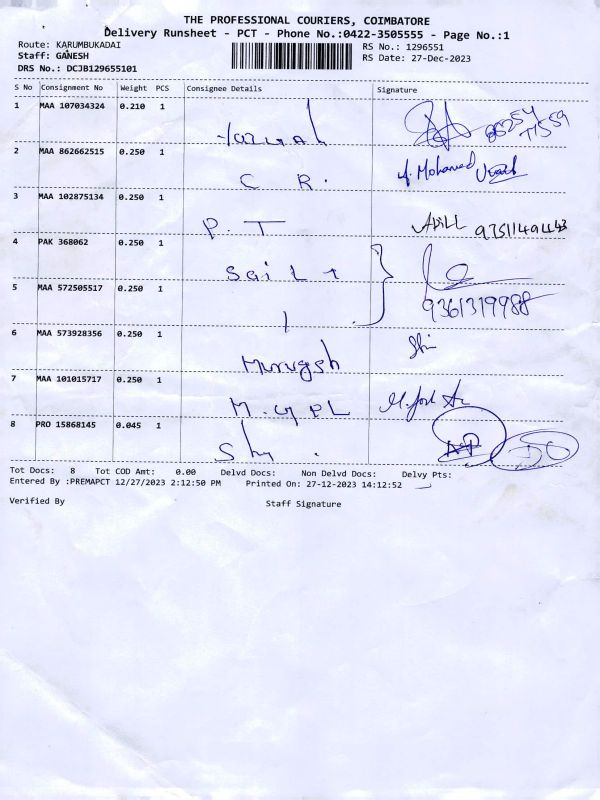 THE PROFESSIONAL COURIERS, COIMBATORE
Delivery Runsheet - PCT - Phone No.:0422-3505555 - Page No.:1
Route: KARUMBUKADAI
RS No.: 1296551
Staff: GANESH
RS Date: 27-Dec-2023
DRS No.: DCJB129655101
S No Consignment No Weight PCS Consignee Details Signature
1 MAA 107034324 0.210 1
2 MAA 862662515 0.250 1 C R. Mohamed
3 MAA 102875134 0.250 1 P. T
4 PAK 368062 0.250 1
5 MAA 572505517 0.250 1 9361319988
6 MAA 573928356 0.250 1 Murugsh
7 MAA 101015717 0.250 1
8 PRO 15868145 0.045 1
Tot Docs: 8 Tot COD Amt: 0.00 Delvd Docs: Non Delvd Docs: Delvy Pts:
Entered By :PREMAPCT 12/27/2023 2:12:50 PM Printed On: 27-12-2023 14:12:52
Verified By Staff Signature